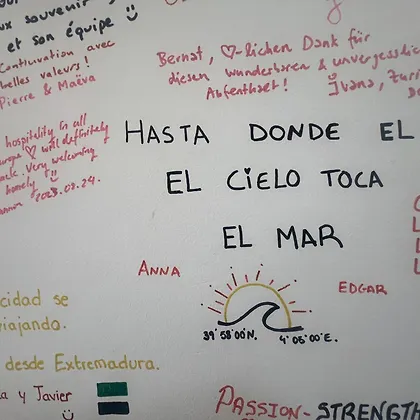 ux souvenir
et son équipe
Continuation avec
belles valeurs!
Pierre & Maëva
Bernat, ♡-lichen Dank für
diesen wunderbaren & unvergesslic
Aufenthalt!
Ivana, Zuri
hospitality in all
urope ♡ will definitely
Very welcoming
homely
2023.08.24.
HASTA DONDE EL
EL CIELO TOCA
EL MAR
ANNA
EDGAR
39°58'00"N. 4°05'00"E.
cidad se
viajando.
desde Extremadura.
a y Javier
PASSION-STRENGTH